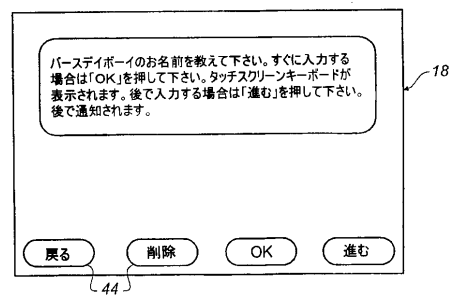 バースデイボーイのお名前を教えて下さい。すぐに入力する
場合は「OK」を押して下さい。タッチスクリーンキーボードが
表示されます。後で入力する場合は「進む」を押して下さい。
後で通知されます。
18
戻る 削除 OK 進む
44